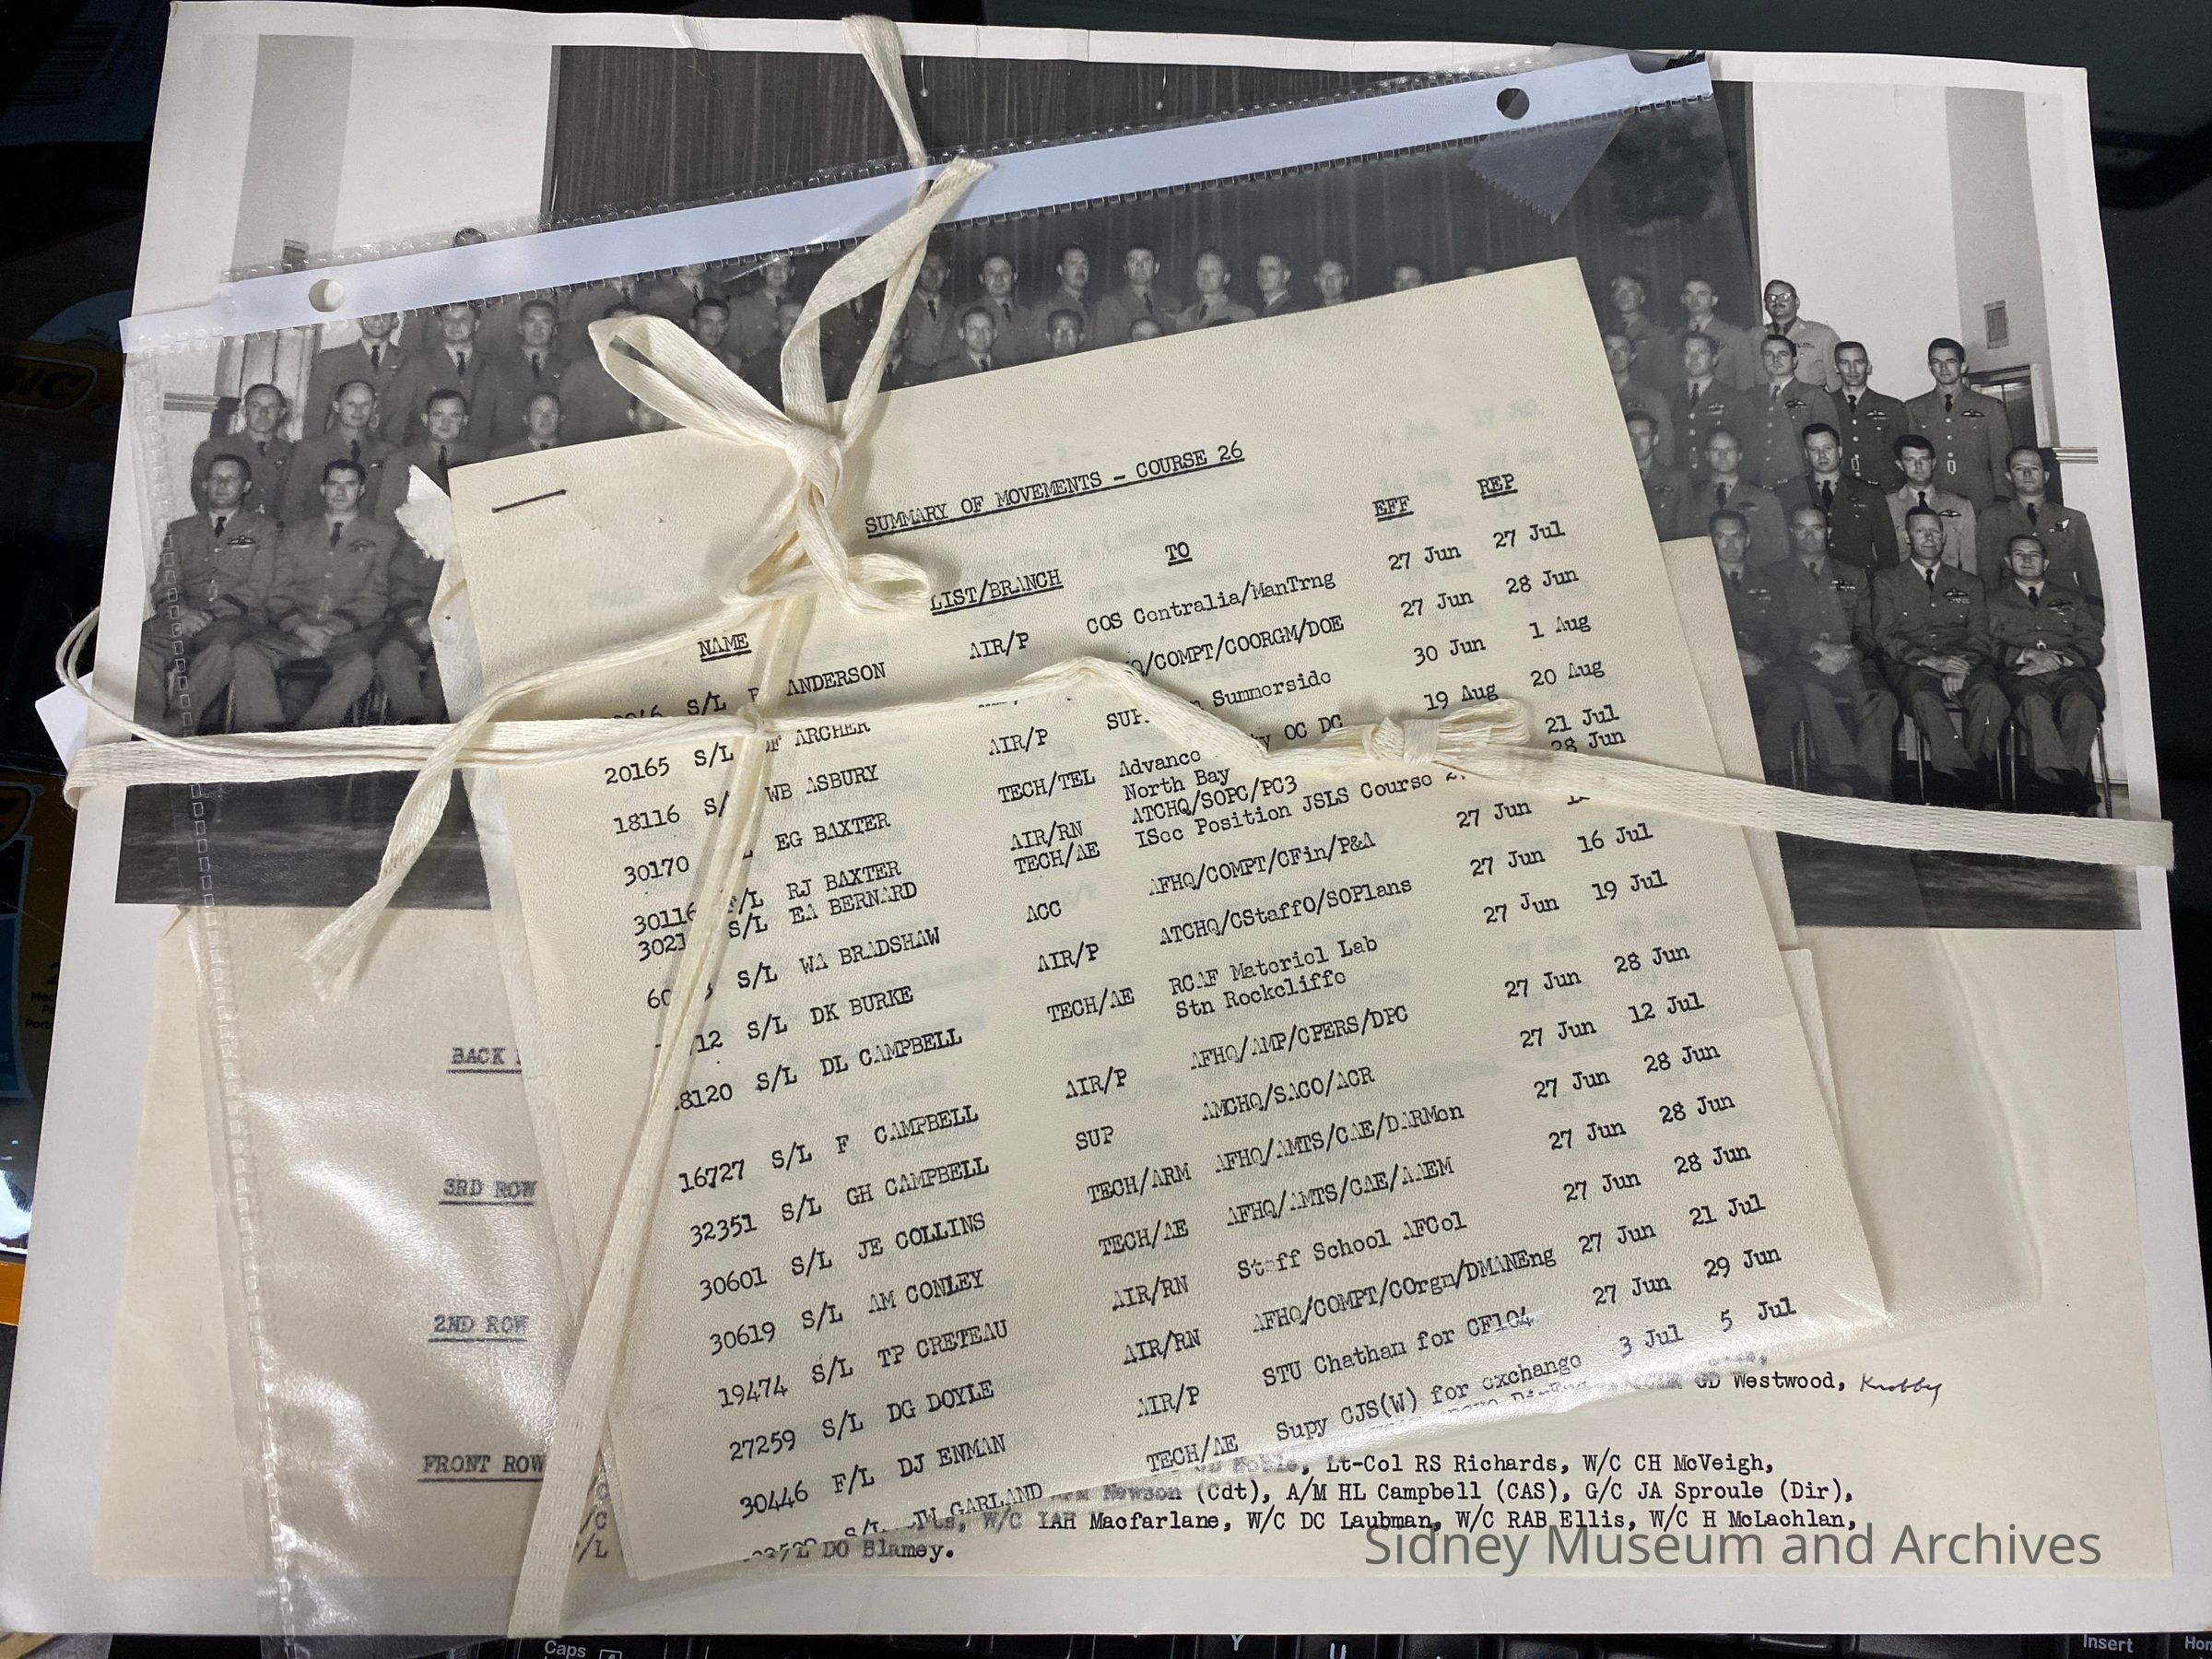 SUMMARY OF MOVEMENTS - COURSE 26
NAME LIST/BRANCH TO EFF REP
S/L ANDERSON AIR/P COS Centralia/ManTrng 27 Jun 27 Jul
20165 S/L DF ARCHER /COMPT/COORGM/DOE 27 Jun 28 Jun
18116 S/ WB ASBURY AIR/P Summerside 30 Jun 1 Aug
30170 EG BAXTER TECH/TEL Advance OC DC 19 Aug 20 Aug
North Bay
30116 F/L RJ BAXTER AIR/RN ATCHQ/SOPC/PC3 21 Jul
S/L EA BERNARD TECH/AE ISec Position JSLS Course 28 Jun
S/L WA BRADSHAW ACC AFHQ/COMPT/CFin/P&A 27 Jun
S/L DK BURKE AIR/P ATCHQ/CStaffO/SOPlans 27 Jun 16 Jul
8120 S/L DL CAMPBELL TECH/AE RCAF Materiel Lab 27 Jun 19 Jul
Stn Rockcliffe
16727 S/L F CAMPBELL AIR/P AFHQ/AMP/CPERS/DPC 27 Jun 28 Jun
32351 S/L GH CAMPBELL SUP AMCHQ/SACO/ACR 27 Jun 12 Jul
30601 S/L JE COLLINS TECH/ARM AFHQ/AMTS/CAE/DARMen 27 Jun 28 Jun
30619 S/L AM CONLEY TECH/AE AFHQ/AMTS/CAE/AAEM 27 Jun 28 Jun
19474 S/L TP CRETEAU AIR/RN Staff School AFCol 27 Jun 28 Jun
27259 S/L DG DOYLE AIR/RN AFHQ/COMPT/COrgn/DMANEng 27 Jun 21 Jul
30446 F/L DJ ENMAN AIR/P STU Chathan for CF104 27 Jun 29 Jun
S/L GARLAND TECH/AE Supy CJS(W) for exchange 3 Jul 5 Jul
BACK
3RD ROW
2ND ROW
GD Westwood,
FRONT ROW
Lt-Col RS Richards, W/C CH McVeigh,
Newson (Cdt), A/M HL Campbell (CAS), G/C JA Sproule (Dir),
W/C IAH Macfarlane, W/C DC Laubman, W/C RAB Ellis, W/C H McLachlan,
DO Blamey.
Sidney Museum and Archives
Caps
Y
U
Insert